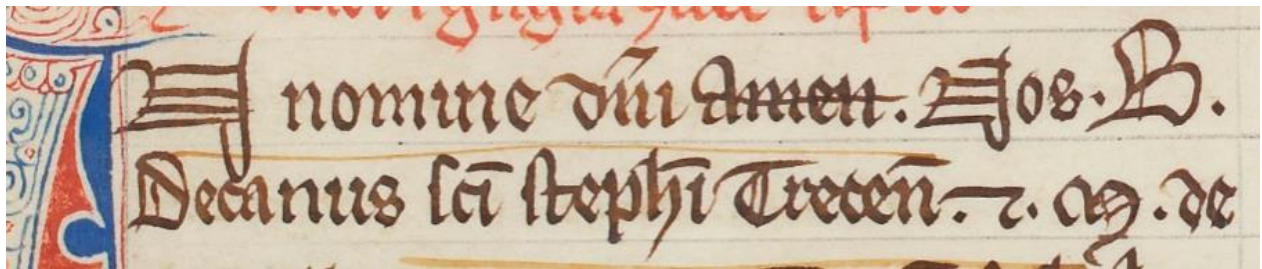 In nomine dñi amen. Nos. B.
Decanus sci̅ steph̅i Trecen̅. ⁊. M. de